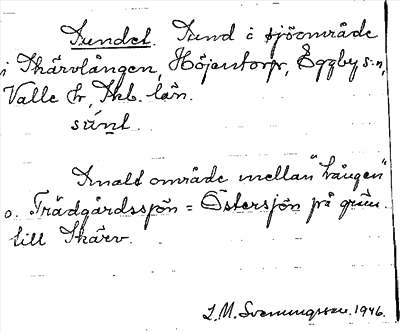 Sundet. Sund i sjöområde
i Skärvlången, Höjentorp, Eggby s:n,
Valle hr, Skb. län.
súnt
Smalt område mellan "Lången"
o. Trädgårdssjön = Östersjön på gräns
till Skärv.
L.M. Svenungsson. 1946.